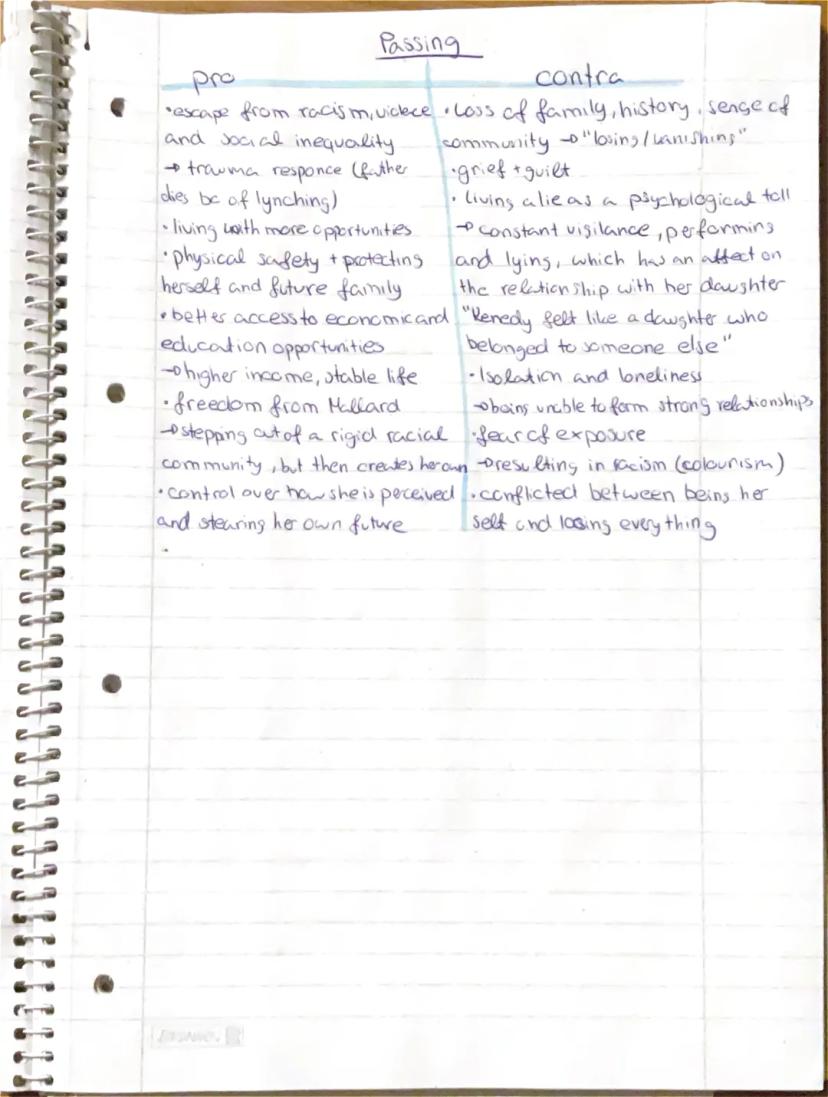 Passing
pro
•escape from racism, violece
and social inequality
→ trauma responce (father
dies bc of lynching)
•living with more opportunities
•physical safety + protecting
herself and future family
•better access to economic and
education opportunities
→higher income, stable life
•freedom from Mallard
→stepping out of a rigid racial
community, but then creates her own
•control over how she is perceived
and stearing her own future
•
contra
•Loss of family, history, sense of
community → "losing/vanishing"
•grief + guilt
•Living a lie as a psychological toll
→constant vigilance, performing
and lying, which has an affect on
the relationship with her daughter
"Kenedy felt like a daughter who
belonged to someone else"
•Isolation and loneliness
→being unable to form strong relationships
•fear of exposure
→resulting in racism (colourism)
•conflicted between being her
self and losing everything